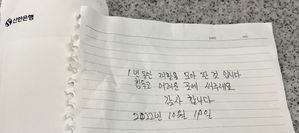 신한은행
1년 동안 저활용 모아 판 것 입니다
힘들고 어려운 곳에 써주세요
감사 합니다
2022년 10월 19일